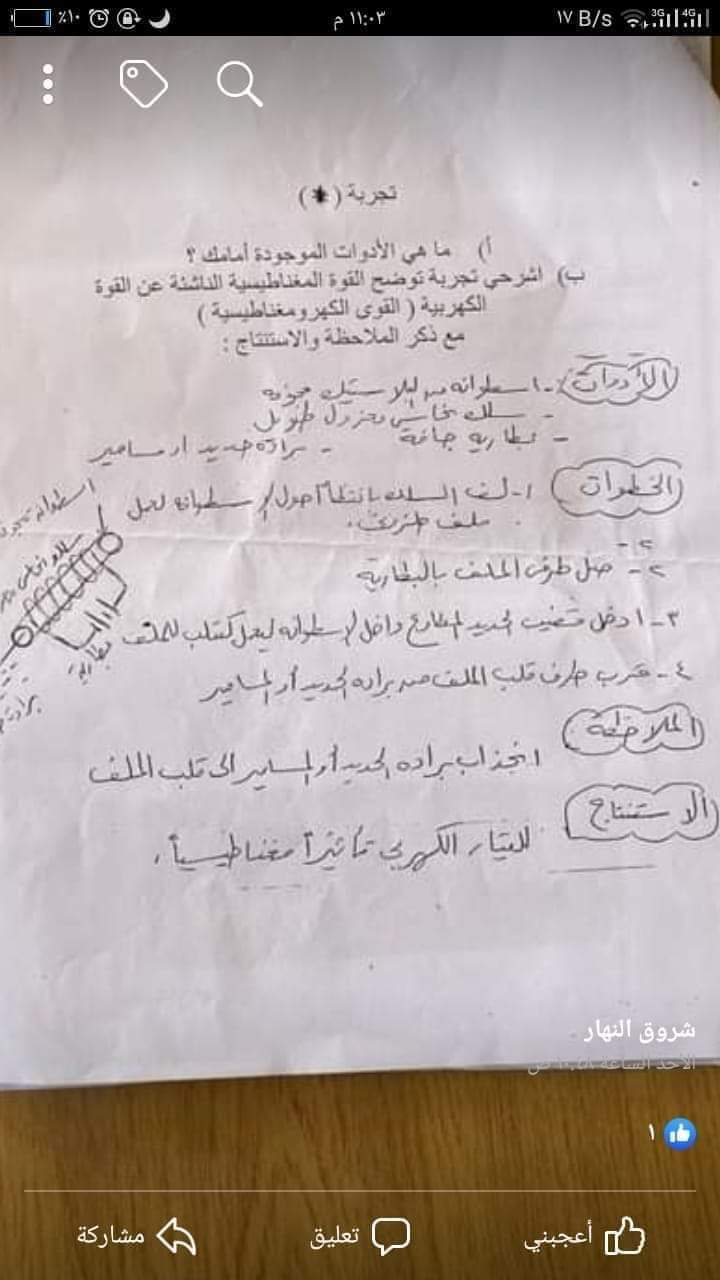 ٪١٠ ١١:٠٣ م ١٧ B/s 3G 4G
تجربة (*)
أ) ما هي الأدوات الموجودة أمامك ؟
ب) اشرحي تجربة توضح القوة المغناطيسية الناشئة عن القوة
الكهربية ( القوى الكهرومغناطيسية )
مع ذكر الملاحظة والاستنتاج :
الأدوات - اسطوانه من البلاستيك مجوفه
- سلك نحاس معزول طويل
- بطارية جافة - برادة حديد أو مسامير
الخطوات ١- لف السلك بانتظام حول الإسطوانه لعمل
ملف حلزوني.
٢-
٢- صل طرفى الملف بالبطارية
٣- ادخل قضيب الحديد المطاوع داخل الإسطوانه ليعمل كقلب للملف
٤- قرب طرف قلب الملف من براده الحديد أو المسامير
اسطوانه
سلك نحاس
بطارية
برادة
الملاحظة
انجذاب براده الحديد أو المسامير الى قلب الملف
الاستنتاج
للتيار الكهربي تأثيراً مغناطيسياً.
شروق النهار
الأحد الساعة
١
أعجبني تعليق مشاركة